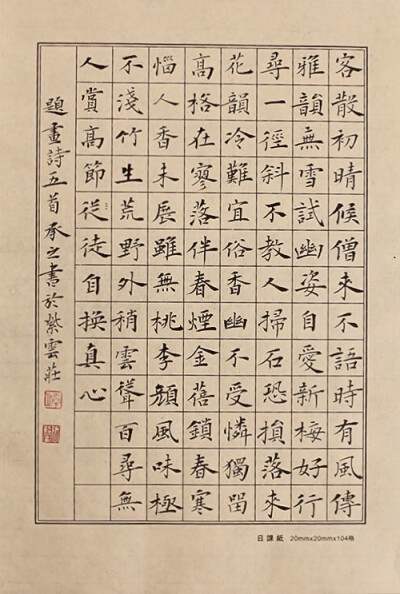 客散初晴候僧來不語時有風傳
雅韻無雪試幽姿自愛新梅好行
尋一徑斜不教人掃石恐損落來
花韻冷難宜俗香幽不受憐獨留
高格在寥落伴春煙金蓓鎖春寒
惱人香未展雖無桃李顏風味極
不淺竹生荒野外稍雲聳百尋無
人賞高節従徒自換真心
題畫詩五首承之書於紫雲莊
日課紙 20mmx20mmx104格